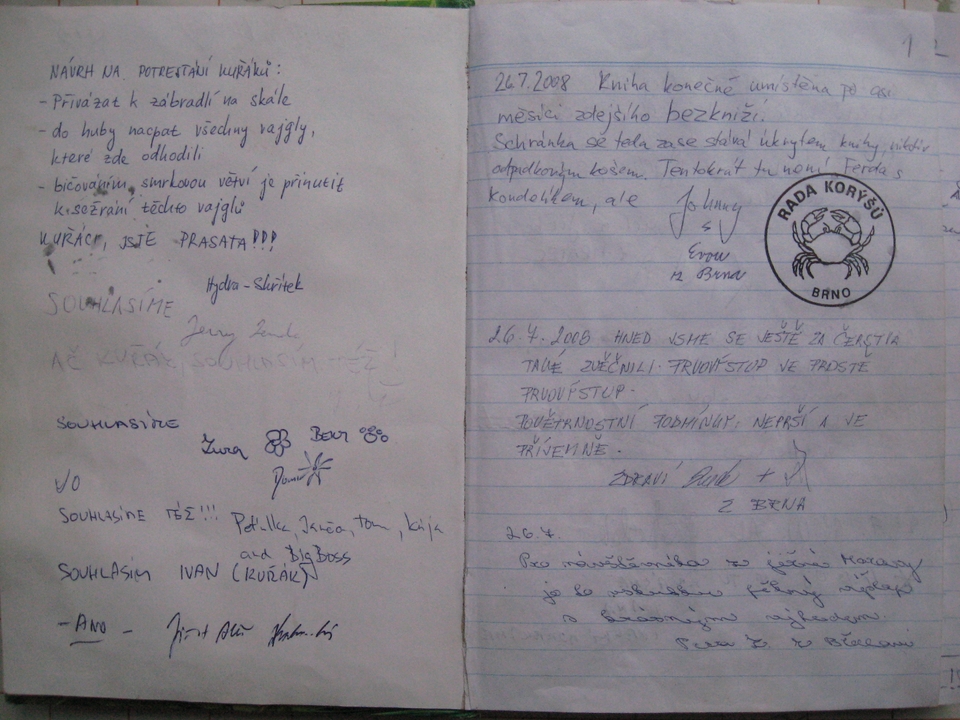 NÁVRH NA POTRESTÁNÍ KUŘÁKŮ:
- Přivázat k zábradlí na skále
- do huby nacpat všechny vajgly,
které zde odhodili
- bičováním smrkovou větví je přinutit
k sežrání těchto vajglů
KUŘÁCI, JSTE PRASATA!!!
Hydra - Skřítek
SOUHLASÍME
AČ KUŘÁK, SOUHLASÍM
SOUHLASÍME
SOUHLASÍME TÉŽ!!!
and BigBoss
SOUHLASÍM IVAN (KUŘÁK)
- ANO -
1 2
26.7.2008 Kniha konečně umístěna po asi
měsíci zdejšího bezkniží.
Schránka se teda zase stává úkrytem knihy, nikoliv
odpadkovým košem. Tentokrát tu není Ferda s
kondelíkem, ale Johnny
s
z Brna
RADA KORÝŠŮ
BRNO
26.7.2008 HNED JSME SE JEŠTĚ ZA ČERSTVA
TAKÉ ZVĚČNILI. PRVOVÝSTUP VE PROSTĚ
PRVOVÝSTUP.
POVĚTRNOSTNÍ PODMÍNKY: NEPRŠÍ A JE
PŘÍJEMNĚ.
ZDRAVÍ +
Z BRNA
26.7.
Pro návštěvníka z jižní Moravy
je to pěkný výšlap
s krásným výhledem.